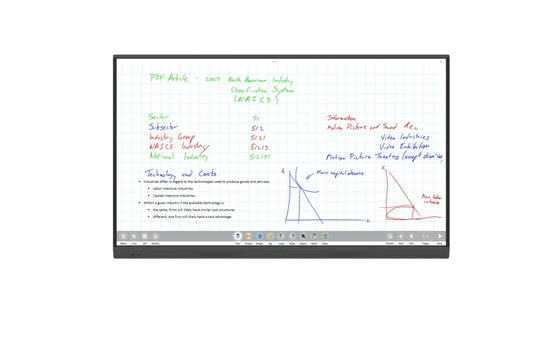 PDF Article - 2007 North American Industry
Classification System
(NAICS)
Sector 51 Information
Subsector 512 Motion Picture and Sound Rec.
Industry Group 5121 Video Industries
NAICS Industry 51213 Video Exhibition
National Industry Motion Picture Theaters (except
Technology and Costs
• Industries differ in regard to the technologies used to produce goods and services.
• Labor-intensive industries.
• Capital-intensive industries.
• Within a given industry if the available technology is:
• the same, firms will likely have similar cost structures.
• different, one firm will likely have a cost advantage.
More capital intensive
More labor
intensive